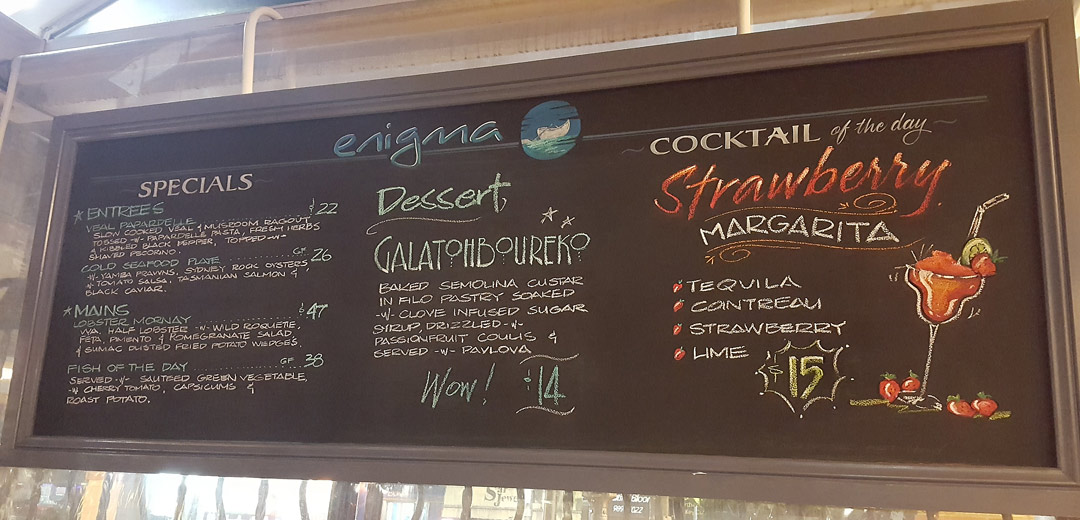 enigma
SPECIALS
ENTREES
VEAL PAPARDELLE ........ $22
SLOW COOKED VEAL & MUSROOM RAGOUT,
TOSSED -W- PAPARDELLE PASTA, FRESH HERBS
KIBBLED BLACK PEPPER, TOPPED -W-
SHAVED PECORINO.
COLD SEAFOOD PLATE ........ GF 26
-W- YAMBA PRAWNS, SYDNEY ROCK OYSTERS,
-W- TOMATO SALSA, TASMANIAN SALMON &
BLACK CAVIAR.
MAINS
LOBSTER MORNAY ........ $47
WA. HALF LOBSTER -W- WILD ROQUETE,
FETA, PIMENTO & POMEGRANATE SALAD,
& SUMAC DUSTED FRIED POTATO WEDGES.
FISH OF THE DAY ........ GF 38
SERVED -W- SAUTEED GREEN VEGETABLE,
-W- CHERRY TOMATO, CAPSICUMS &
ROAST POTATO.
Dessert
GALATOHBOUREKO
BAKED SEMOLINA CUSTAR
IN FILO PASTRY SOAKED
-W- CLOVE INFUSED SUGAR
SYRUP, DRIZZLED -W-
PASSIONFRUIT COULIS &
SERVED -W- PAVLOVA
Wow! $14
COCKTAIL of the day
Strawberry
MARGARITA
TEQUILA
COINTREAU
STRAWBERRY
LIME
$15